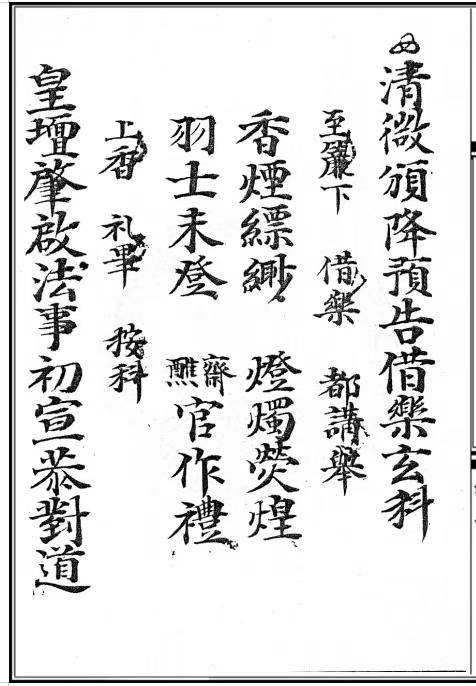 清微頒降預告借樂玄科
至嚴下 借樂 都講舉
香煙縹緲 燈燭熒煌
羽士未登 齋醮官作禮
上香 礼畢 按科
皇壇肇啟法事初宣恭對道